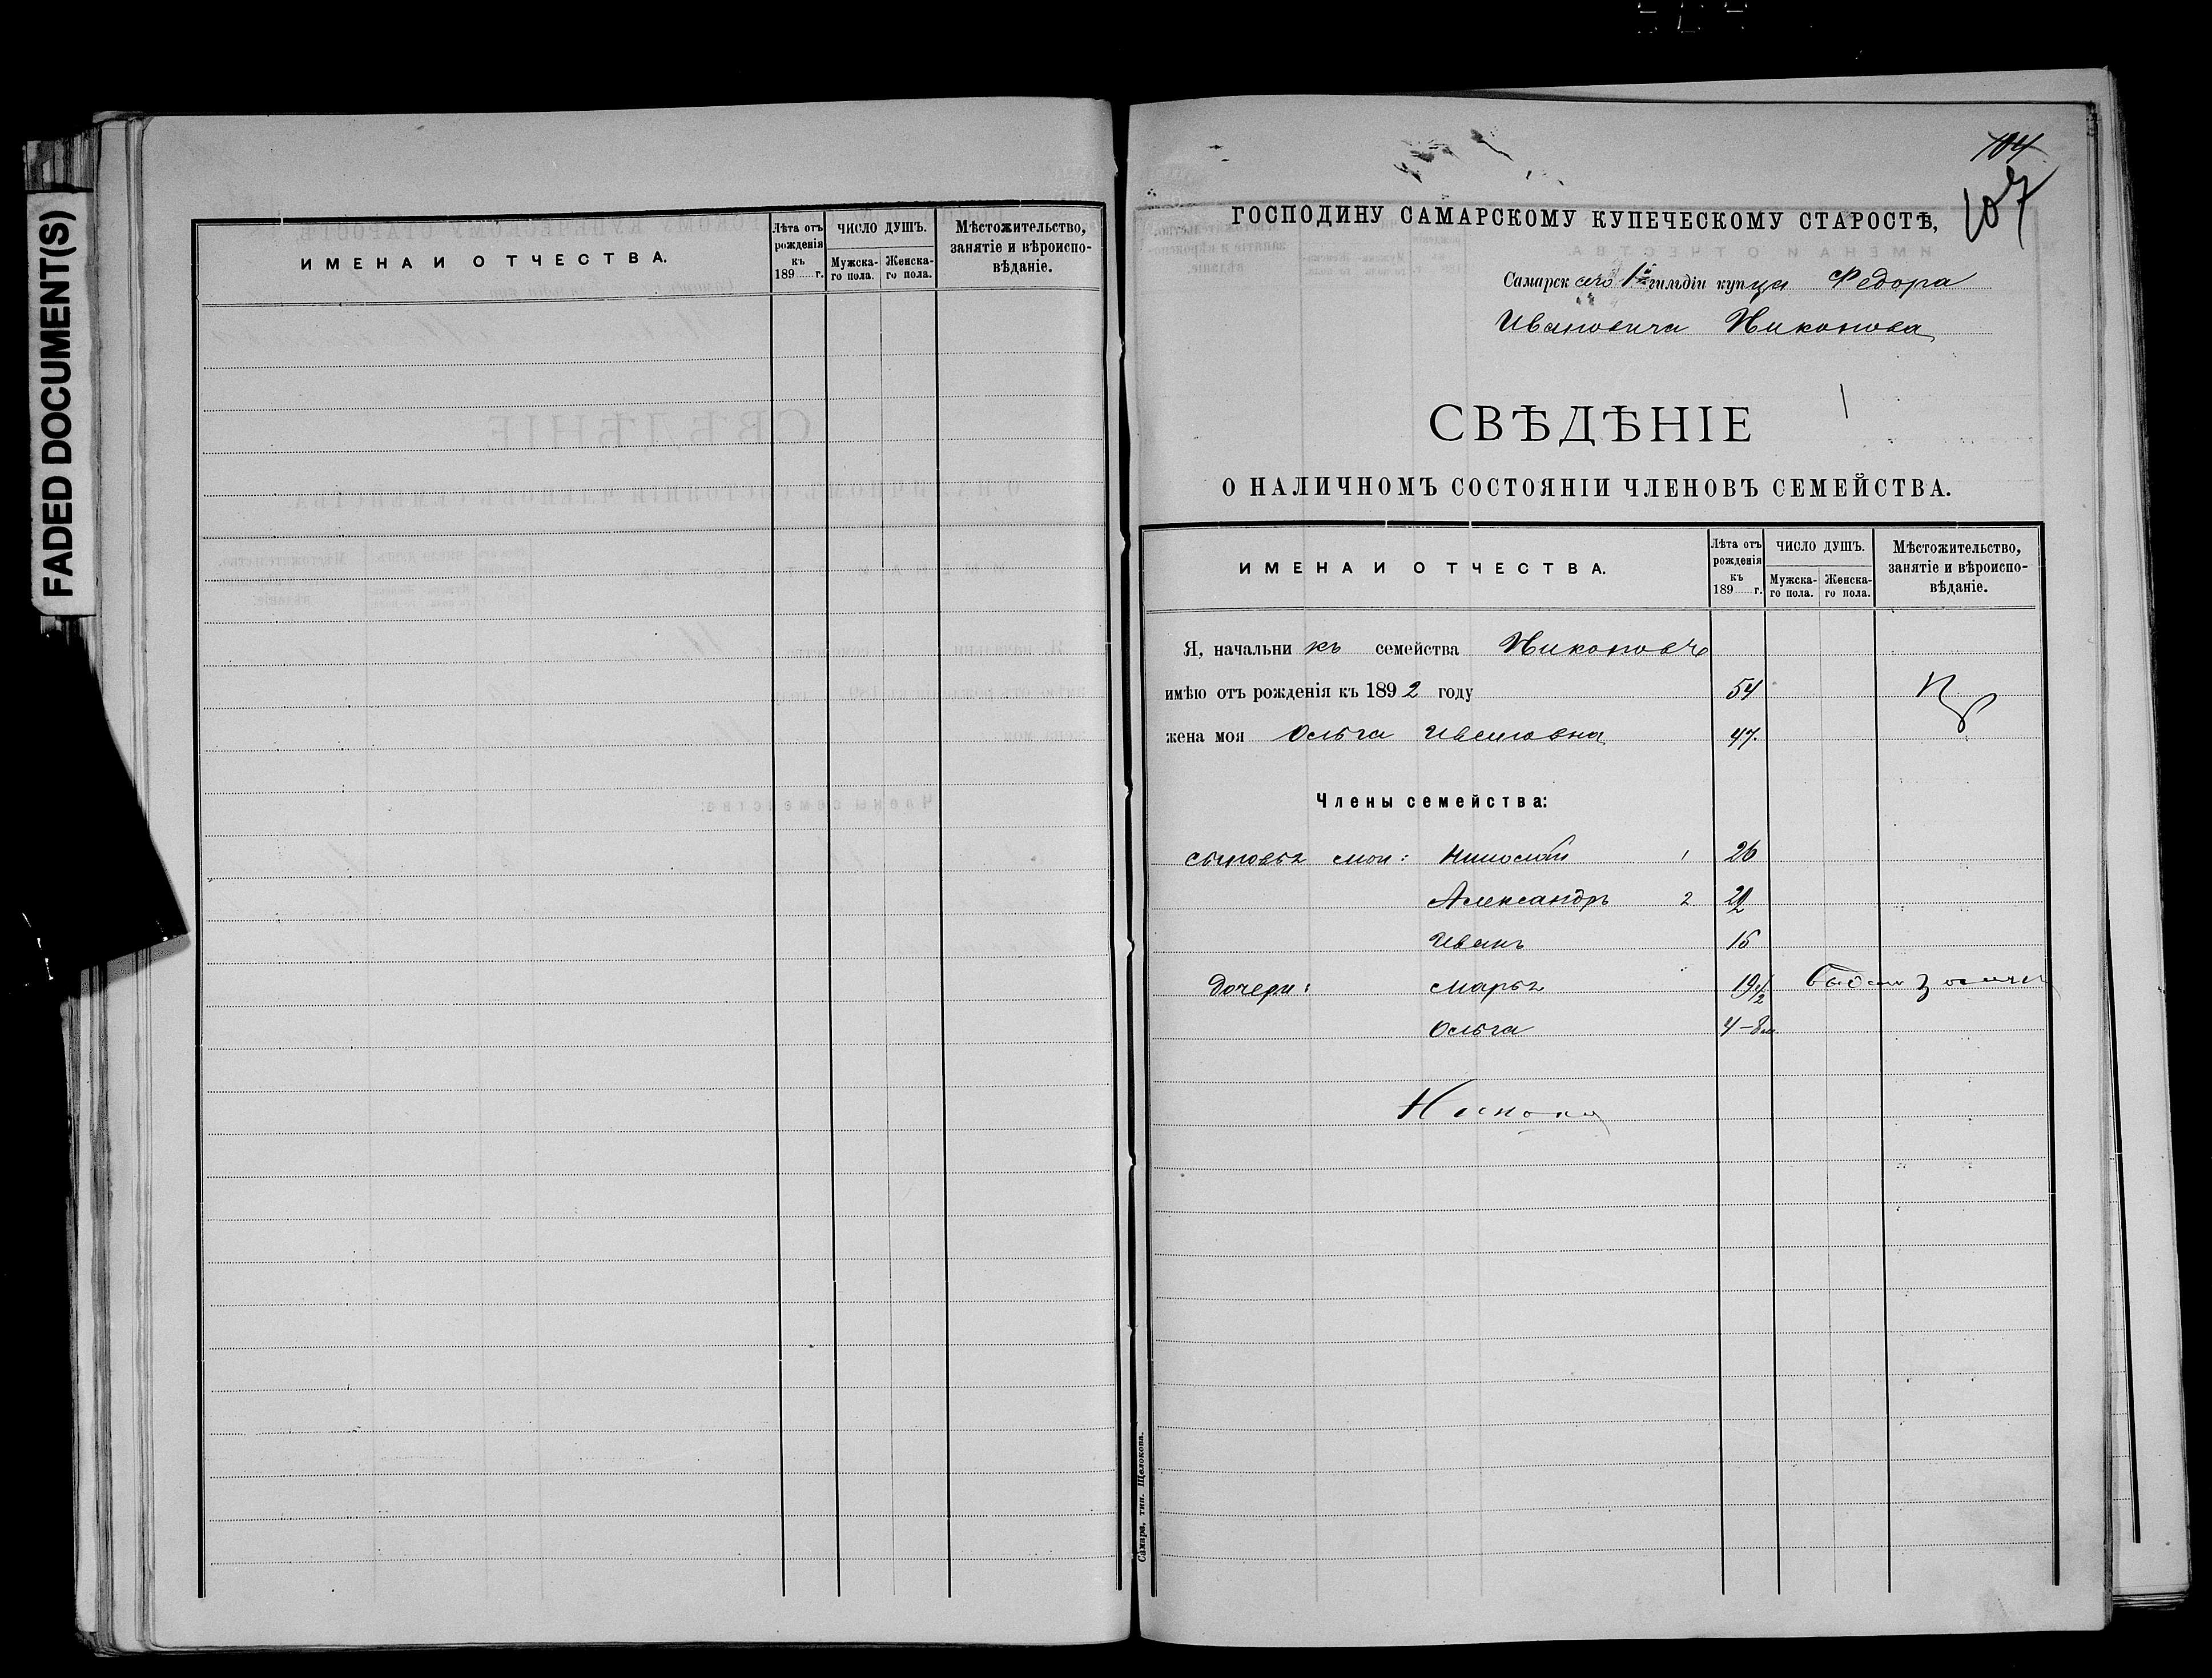 FADED DOCUMENT(S)
ИМЕНА И ОТЧЕСТВА.
Лѣта отъ рожденія къ 189 г.
ЧИСЛО ДУШЪ.
Мужска-го пола.
Женска-го пола.
Мѣстожительство, занятіе и вѣроиспо-вѣданіе.
104
107
ГОСПОДИНУ САМАРСКОМУ КУПЕЧЕСКОМУ СТАРОСТѢ,
Самарскаго 1й гильдіи купца Федора
Ивановича Никонова
СВѢДѢНІЕ
О НАЛИЧНОМЪ СОСТОЯНІИ ЧЛЕНОВЪ СЕМЕЙСТВА.
ИМЕНА И ОТЧЕСТВА.
Лѣта отъ рожденія къ 189 г.
ЧИСЛО ДУШЪ.
Мужска-го пола.
Женска-го пола.
Мѣстожительство, занятіе и вѣроиспо-вѣданіе.
Я, начальникъ семейства Никоновъ
имѣю отъ рожденія къ 1892 году 54
жена моя Ольга Ивановна 47
Члены семейства:
сыновья мои: Николай 1 26
Александръ 2
Иванъ 15
дочери: Марья 19 1/2
Ольга 4-8м.
Самара, тип. Щелокова.